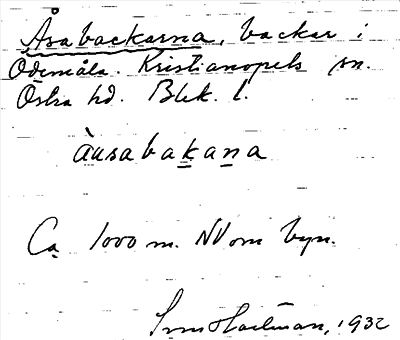 Åsabackarna, backar i
Ödemåla. Kristianopels sn.
Östra hd. Blek. l.
àusabakana
Ca 1000 m. NV om byn.
Hartman, 1932